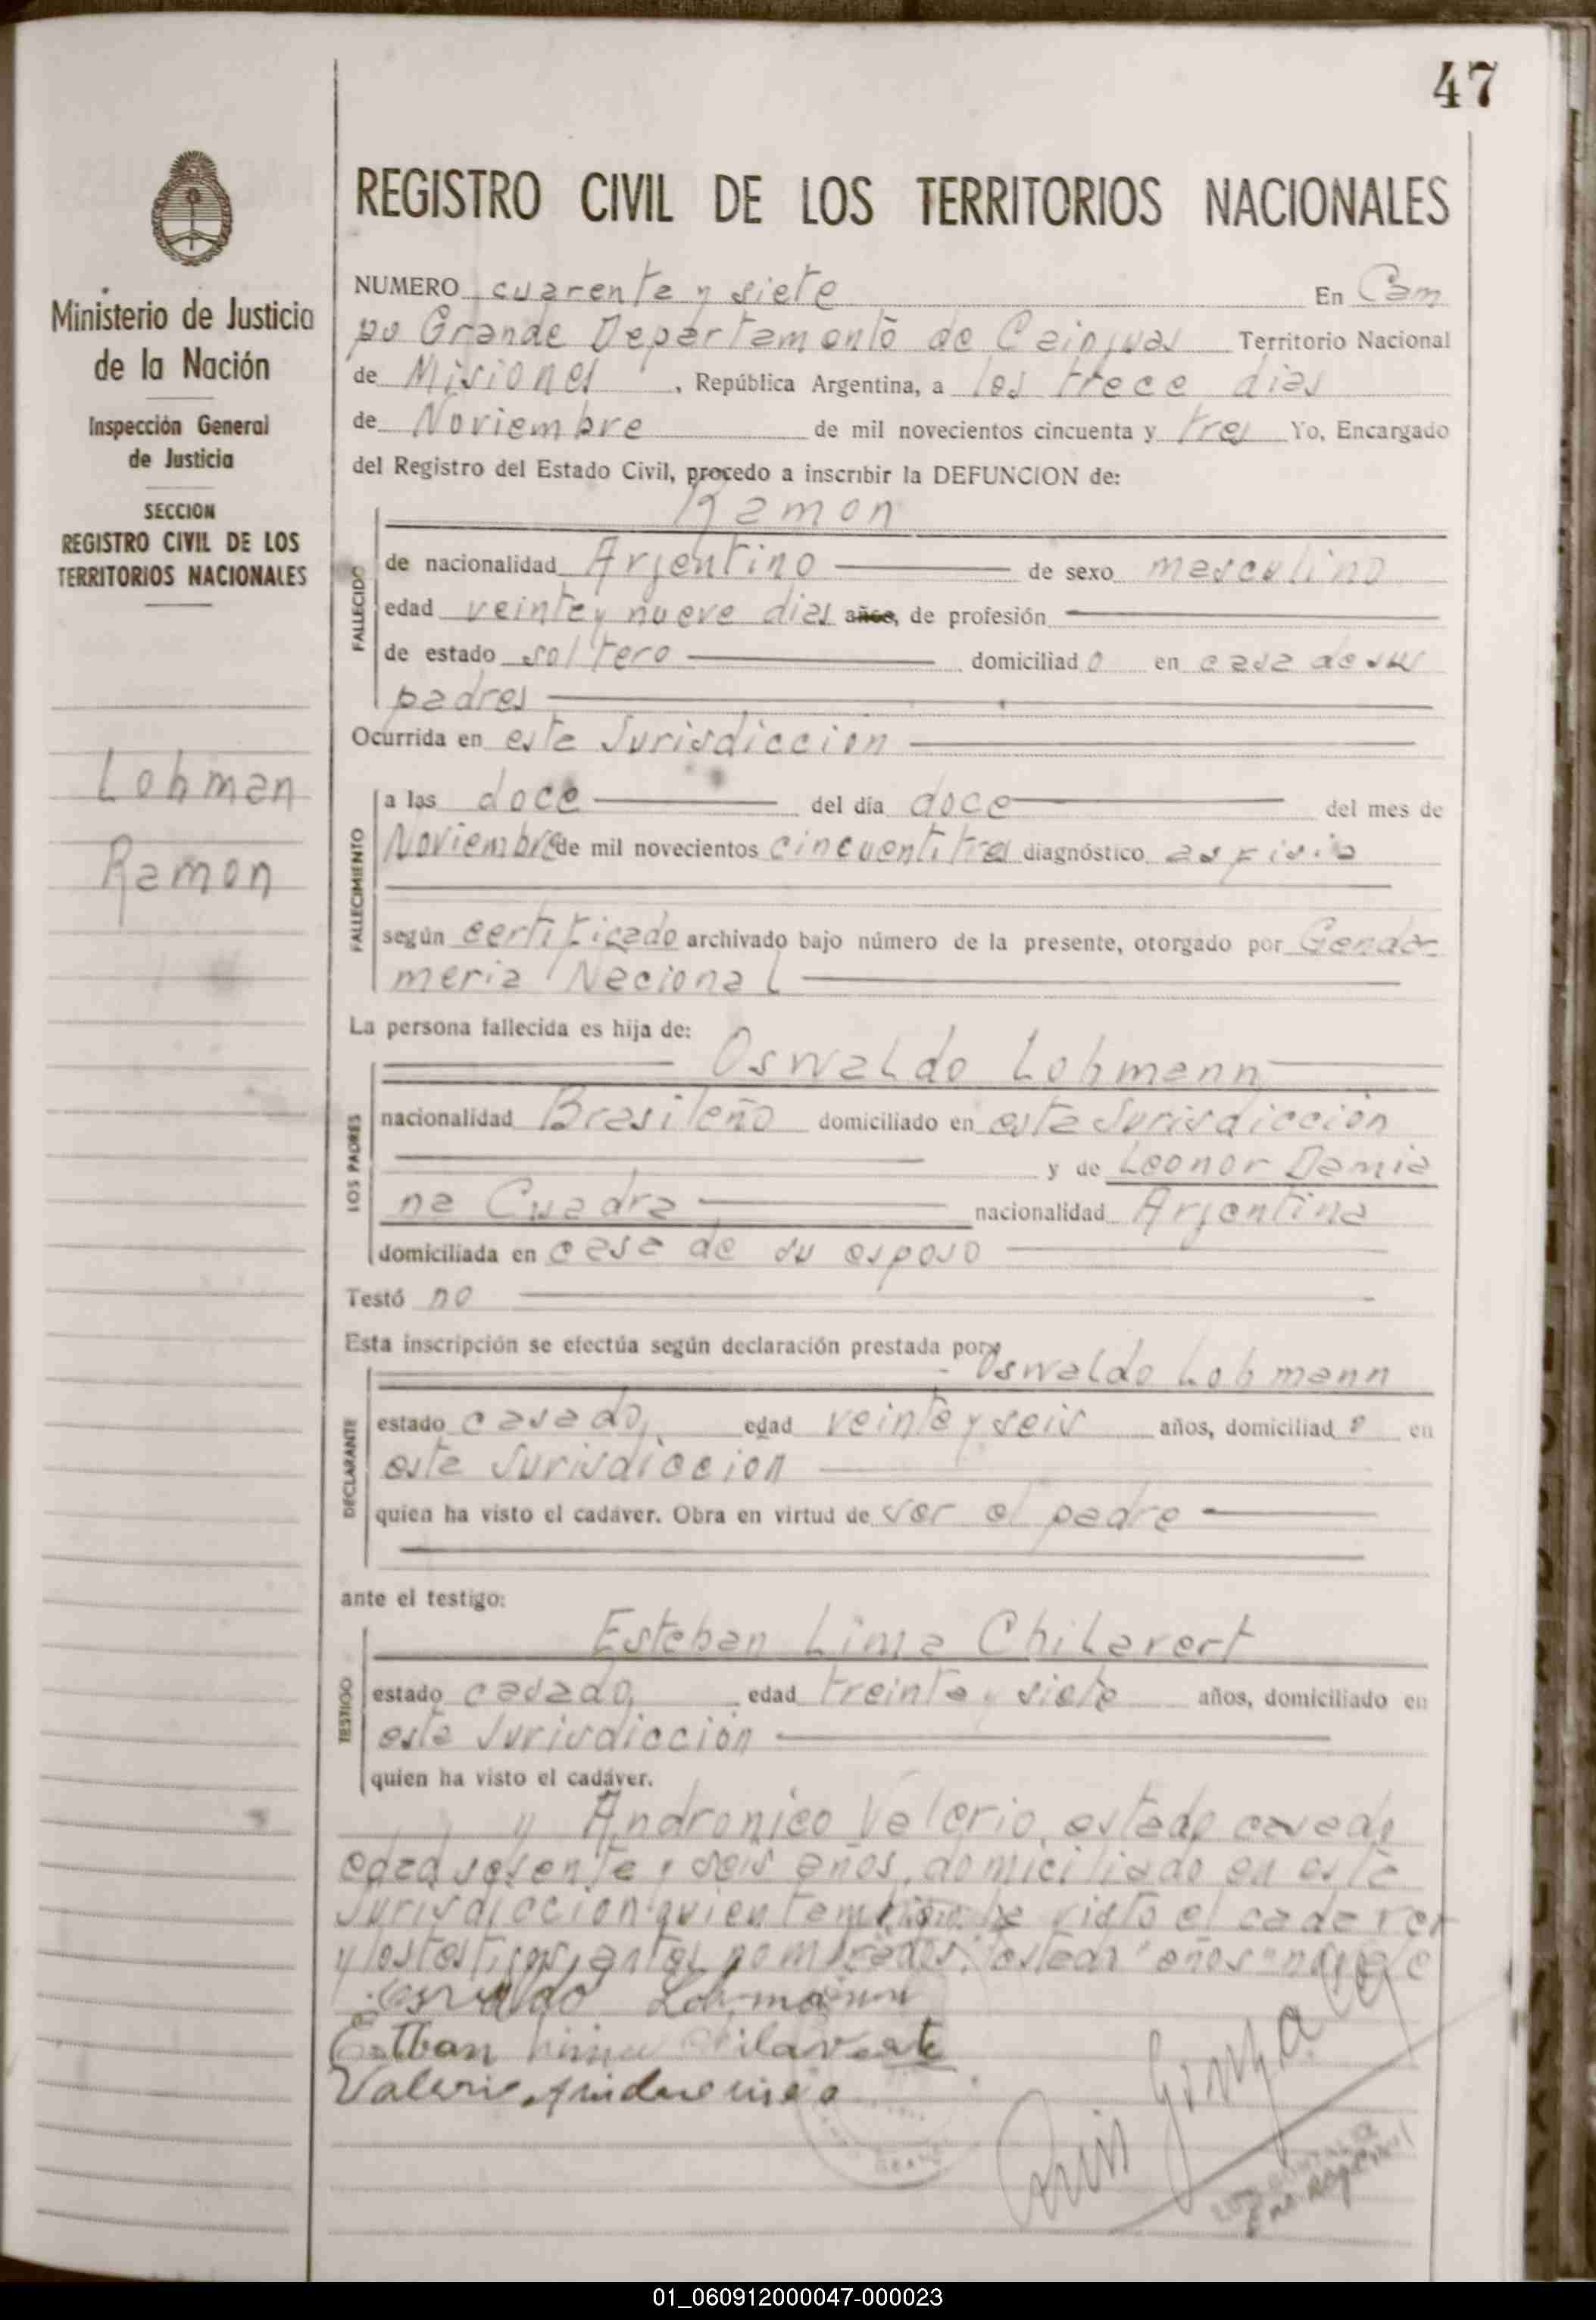 47
REGISTRO CIVIL DE LOS TERRITORIOS NACIONALES
Ministerio de Justicia
de la Nación
Inspección General
de Justicia
SECCION
REGISTRO CIVIL DE LOS
TERRITORIOS NACIONALES
Lohman
Ramon
NUMERO cuarenta y siete En Cam
po Grande Departamento de Cainguas Territorio Nacional
de Misiones, República Argentina, a los trece dias
de Noviembre de mil novecientos cincuenta y tres Yo, Encargado
del Registro del Estado Civil, procedo a inscribir la DEFUNCION de:
Ramon
FALLECIDO
de nacionalidad Arjentino de sexo masculino
edad veinte y nueve dias años, de profesión
de estado soltero domiciliado en casa de sus
padres
Ocurrida en esta Jurisdiccion
FALLECIMIENTO
a las doce del día doce del mes de
Noviembre de mil novecientos cincuentitres diagnóstico asfisia
según certificado archivado bajo número de la presente, otorgado por Genda-
meria Nacional
La persona fallecida es hija de:
Oswaldo Lohmann
LOS PADRES
nacionalidad Brasileño domiciliado en esta Jurisdiccion
y de Leonor Damia
na Cuadra nacionalidad Arjentina
domiciliada en casa de su esposo
Testó no
Esta inscripción se efectúa según declaración prestada por
Oswaldo Lohmann
DECLARANTE
estado casado, edad veinte y seis años, domiciliado en
esta Jurisdiccion
quien ha visto el cadáver. Obra en virtud de ser el padre
ante el testigo:
Esteban Lima Chilavert
TESTIGO
estado casado, edad treinta y siete años, domiciliado en
esta Jurisdicción
quien ha visto el cadáver.
y Andronico Valerio, estado casado
edad sesenta y seis años, domiciliado en esta
Jurisdiccion quien tambien ha visto el cadaver
y los testigos antes nombrados. testado "años" no vale
Oswaldo Lohmann
Esteban Lima Chilavert
Valerio Andronico
Luis Gonzalez
LUIS GONZALEZ